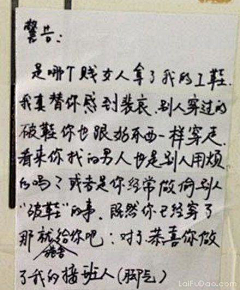 警告：
是哪个贱女人拿了我的工鞋.
我真替你感到悲哀.别人穿过的
破鞋你也跟奶东西一样穿走.
看来你找的男人也是别人用烦
的吗？或者是你经常做偷别人
“破鞋”的事.既然你已经穿了
那就送给你吧：对了恭喜你做
了我的接班人（脚气）
LaiFuDao.com